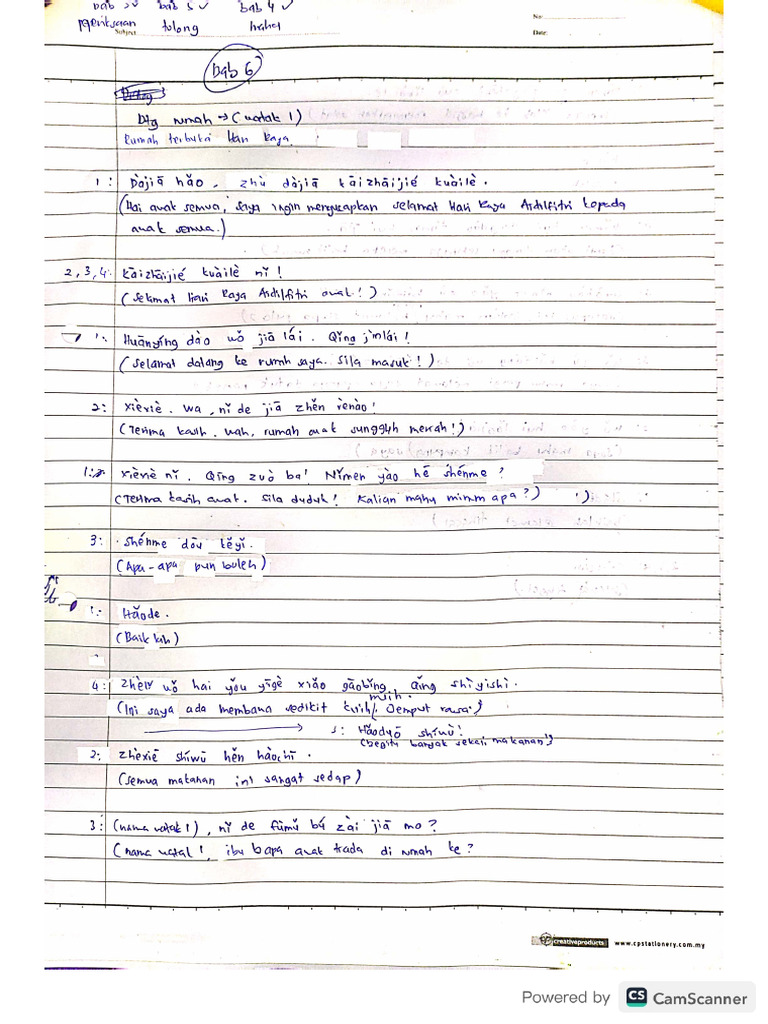 bab 2 ✓ bab 5 ✓ bab 4 ✓
pperiksaan tolong
Subject
No:
Date:
bab 6
Dtg rumah → (watak 1)
Rumah terbuka Hari Raya.
1: Dàjiā hǎo, zhù dàjiā kāizhāijié kuàilè.
(Hai awak semua, saya ingin mengucapkan selamat Hari Raya Aidilfitri kepada
awak semua.)
2, 3, 4: Kāizhāijié kuàilè nǐ!
(Selamat Hari Raya Aidilfitri awak!)
1: Huānyíng dào wǒ jiā lái. Qǐng jìnlái!
(Selamat datang ke rumah saya. Sila masuk!)
2: Xièxiè. Wa, nǐ de jiā zhēn rènào!
(Terima kasih. Wah, rumah awak sunggüh meriah!)
1: Xièxiè nǐ. Qǐng zuò ba! Nǐmen yào hē shénme?
(Terima kasih awak. Sila duduk! Kalian mahu minum apa?)
3: Shénme dōu kěyǐ.
(Apa-apa pun boleh)
1: Hǎode.
(Baik lah)
4: Zhèlǐ wǒ hai yǒu yīgè xiǎo gāobǐng. Qǐng shìyīshì.
(Ini saya ada membawa sedikit kuih. Jemput rasa.)
3: Hǎoduō shíwù!
(Begitu banyak sekali makanan!)
2: Zhèxiē shíwù hěn hǎochī.
(Semua makanan ini sangat sedap)
3: (nama watak 1), nǐ de fùmǔ bú zài jiā mo?
(nama watak 1, ibu bapa awak tiada di rumah ke?
creativeproducts www.cpstationery.com.my
Powered by CS CamScanner